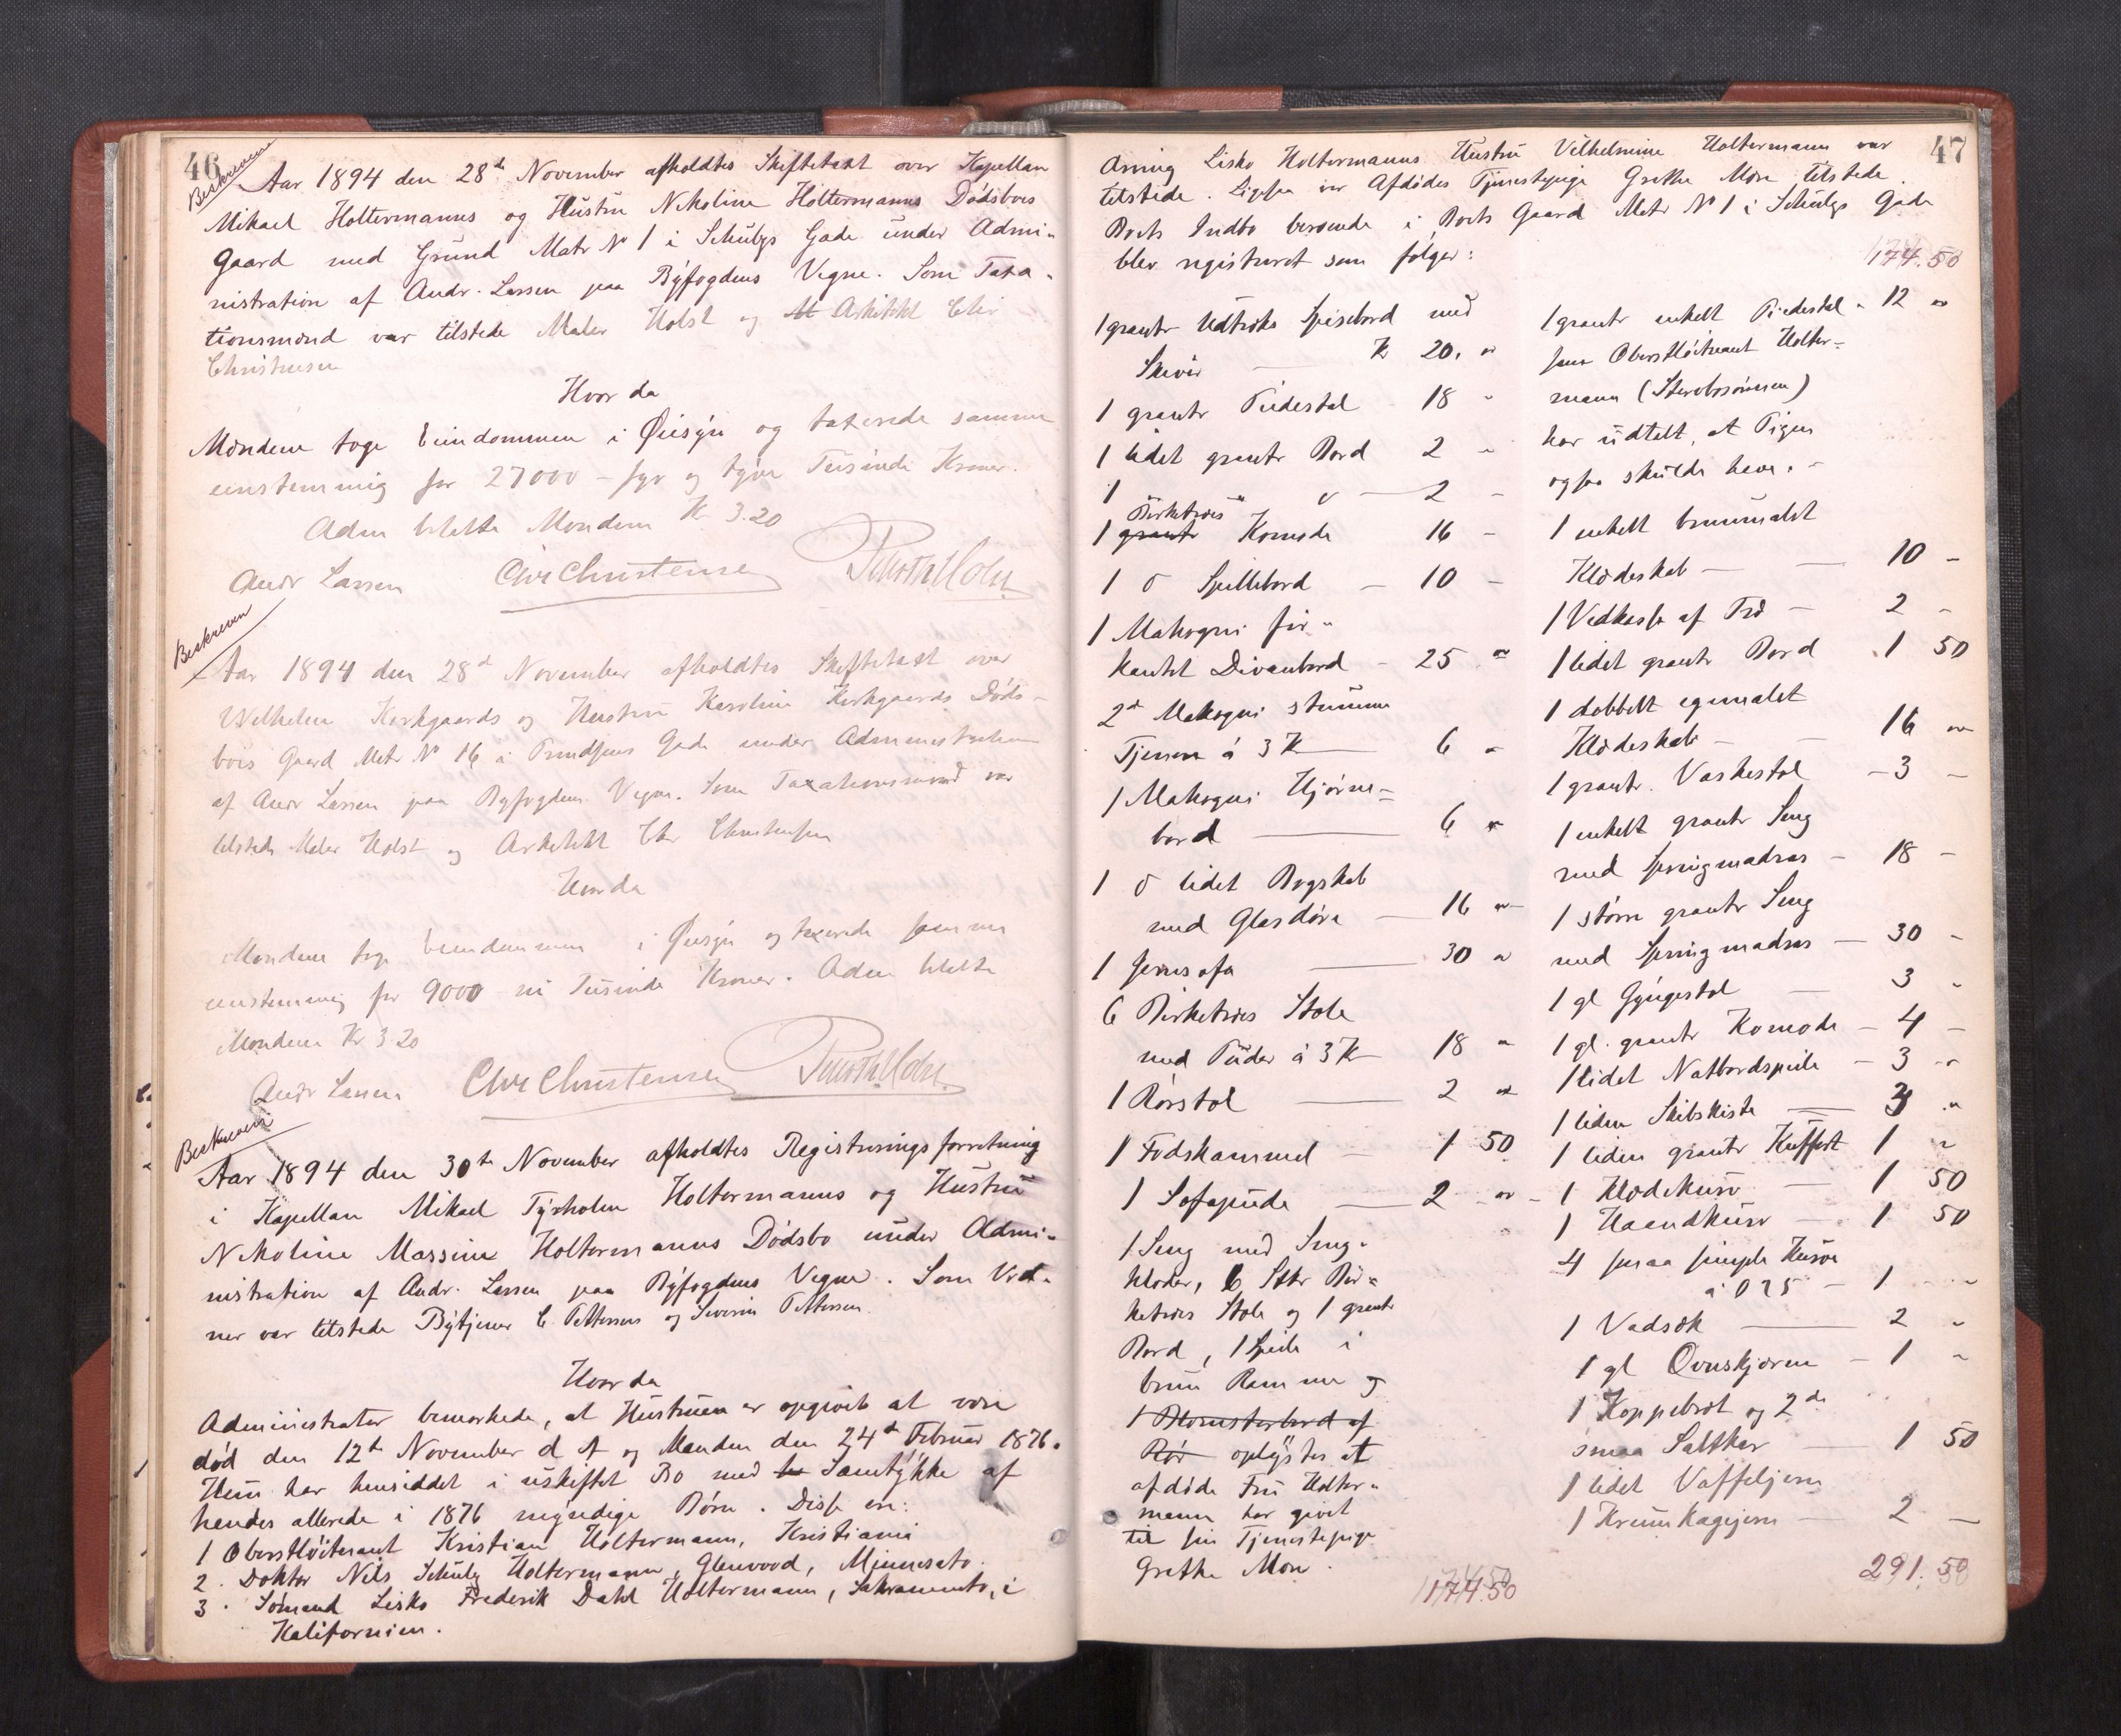 46
Beskreven
Aar 1894 den 28de November afholdtes Skiftetaxt over Kapellan
Mikael Holtermanns og Hustru Nikoline Holtermanns Dødsbos
Gaard med Grund Matr No 1 i Schultz Gade under Admi-
nistration af Andr. Larsen paa Byfogdens Vegne. Som Taxa-
tionsmænd var tilstede Maler Holst og Arkitekt Chr
Christensen
Hvor da
Mændene toge Eiendommen i Øiesyn og taxerede samme
enstemmig for 27000 - syv og tyve Tusinde Kroner.
Adm betalte Mændene Kr 3.20
Andr Larsen Chr Christensen Holst
Beskreven
Aar 1894 den 28de November afholdtes Skiftetaxt over
Wilhelm Kirkgaards og Hustru Karoline Kirkgaards Døds-
bos Gaard Matr No 16 i Gade under Administration
af Andr Larsen paa Byfogdens Vegne. Som Taxationsmænd var
tilstede Maler Holst og Arkitekt Chr Christensen
Hvor da
Mændene toge Eiendommen i Øiesyn og taxerede samme
enstemmig for 9000 ni Tusinde Kroner. Adm betalte
Mændene Kr 3.20
Andr Larsen Chr Christensen Holst
Beskreven
Aar 1894 den 30te November afholdtes Registreringsforretning
i Kapellan Mikael Tyrholm Holtermanns og Hustru
Nikoline Massine Holtermanns Dødsbo under Admi-
nistration af Andr. Larsen paa Byfogdens Vegne. Som Vid-
ner var tilstede Bytjener C. Pettersen og Severin Pettersen.
Hvor da
Administrator bemærkede, at Hustruen er opgivet at være
død den 12te November d A og Manden den 24de Februar 1876.
Hun har hensiddet i uskiftet Bo med Samtykke af
hendes allerede i 1876 myndige Børn. Disse er:
1 Oberstløitenant Kristian Holtermann, Kristiania
2. Doktor Nils Schultz Holtermann, Glenwood, Minnesota.
3. Sømand Lisko Frederik Dahl Holtermann, Sakramento, i
Kalifornien.
47
Arving Lisko Holtermanns Hustru Vilhelmine Holtermann var
tilstede. Ligesaa var Afdødes Tjenestepige Grethe Moen tilstede.
Boets Indbo beroende i Boets Gaard Matr No 1 i Schultz Gade
blev registreret som følger:
1 grantr Udtræks Spisebord med
Skuver — K 20. "
1 grantr Piedestal - 18 "
1 lidet grantr Bord 2 "
1 d — 2 -
Birketræs
1 grantr Komode 16 -
1 d Spillebord - 10 -
1 Mahogni fir-
kantet Divanbord - 25 "
2de Mahogni stumme
Tjenere á 3 K — 6 "
1 Mahogni Hjørne-
bord — 6 "
1 d lidet Bogskab
med Glasdøre — 16 "
1 Jernsofa — 30 "
6 Birketræs Stole
med Puder á 3 K 18 "
1 Rørstol — 2 "
1 Fodskammel — 1 50
1 Sofapude — 2 "
1 Seng med Seng-
klæder, 6 Stkr Bir-
ketræs Stole og 1 grantr
Bord, 1 Speile i
brun Ramme og
1 Blomsterbord af
Rør oplystes at
afdøde Fru Holter-
mann har givet
til sin Tjenestepige
Grethe Moen.
174.50
174.50
1 grantr enkelt Piedestal - 12 "
som Oberstløitnant Holter-
mann (Stervbosønnen)
har udtalt, at Pigen
ogsaa skulde have. -
1 enkelt brunmalet
Klædeskab — 10 -
1 Vedkasse af Træ — 2 -
1 lidet grantr Bord 1 50
1 dobbelt egmalet
Klædeskab — 16 "
1 grantr. Vaskestol - 3 -
1 enkelt grantr Seng
med Springmadras - 18 -
1 større grantr Seng
med Springmadras — 30 -
1 gl Gyngestol — 3 -
1 gl. grantr Komode - 4 -
1 lidet Natbordspeile - 3 "
1 liden Skibskiste — 3 "
1 liden grantr Kuffert 1 "
1 Klædekurv — 1 50
1 Haandkurv — 1 50
4 smaa simple Kurve
á 0 25 - 1 "
1 Vadsæk — 2 "
1 gl Ovnskjærm - 1 "
1 Koppebræt og 2de
smaa Saltkar — 1 50
1 lidet Vaffeljern
1 Krumkagejern — 2 —
291.50